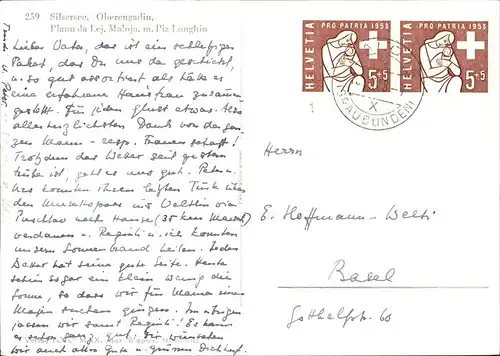 259 Silsersee. Oberengadin.
Plaun da Lej. Maloja. m. Piz Longhin
Lieber Vater, das ist ein
Paket, das Du uns da geschickt,
u. so gut assortiert als hätte es
eine erfahrene Hausfrau zusammen
gestellt. Für jeden Glust etwas. Also
allerherzlichsten Dank von der gan
zen Mann- resp. Frauenschaft!
Trotzdem das Wetter seit gestern
trübe ist, geht es uns gut. Peter u.
konnten ihren letzten Turk über
den Murettopass ins Veltlin via
Puschlav nach Hause (35 km Marsch)
verdauen u. Regineli u. ich konnten
unsern Sonnenbrand heilen. Jedes
Wetter hat seine gute Seite. Heute
schien sogar ein klein wenig die
Sonne, so dass wir für Mama einen
suchen gingen. Im übrigen
jassen wir samt Regineli! Es kann
es schon ganz gut. Dir wünschen
wir auch alles Gute u. grüssen Dich herzl.
HELVETIA
PRO PATRIA 1958
5+5
HELVETIA
PRO PATRIA 1958
5+5
(GRAUBÜNDEN)
X
1
Herrn
E. Hoffmann-Welti
Basel
Gotthelfstr. 60